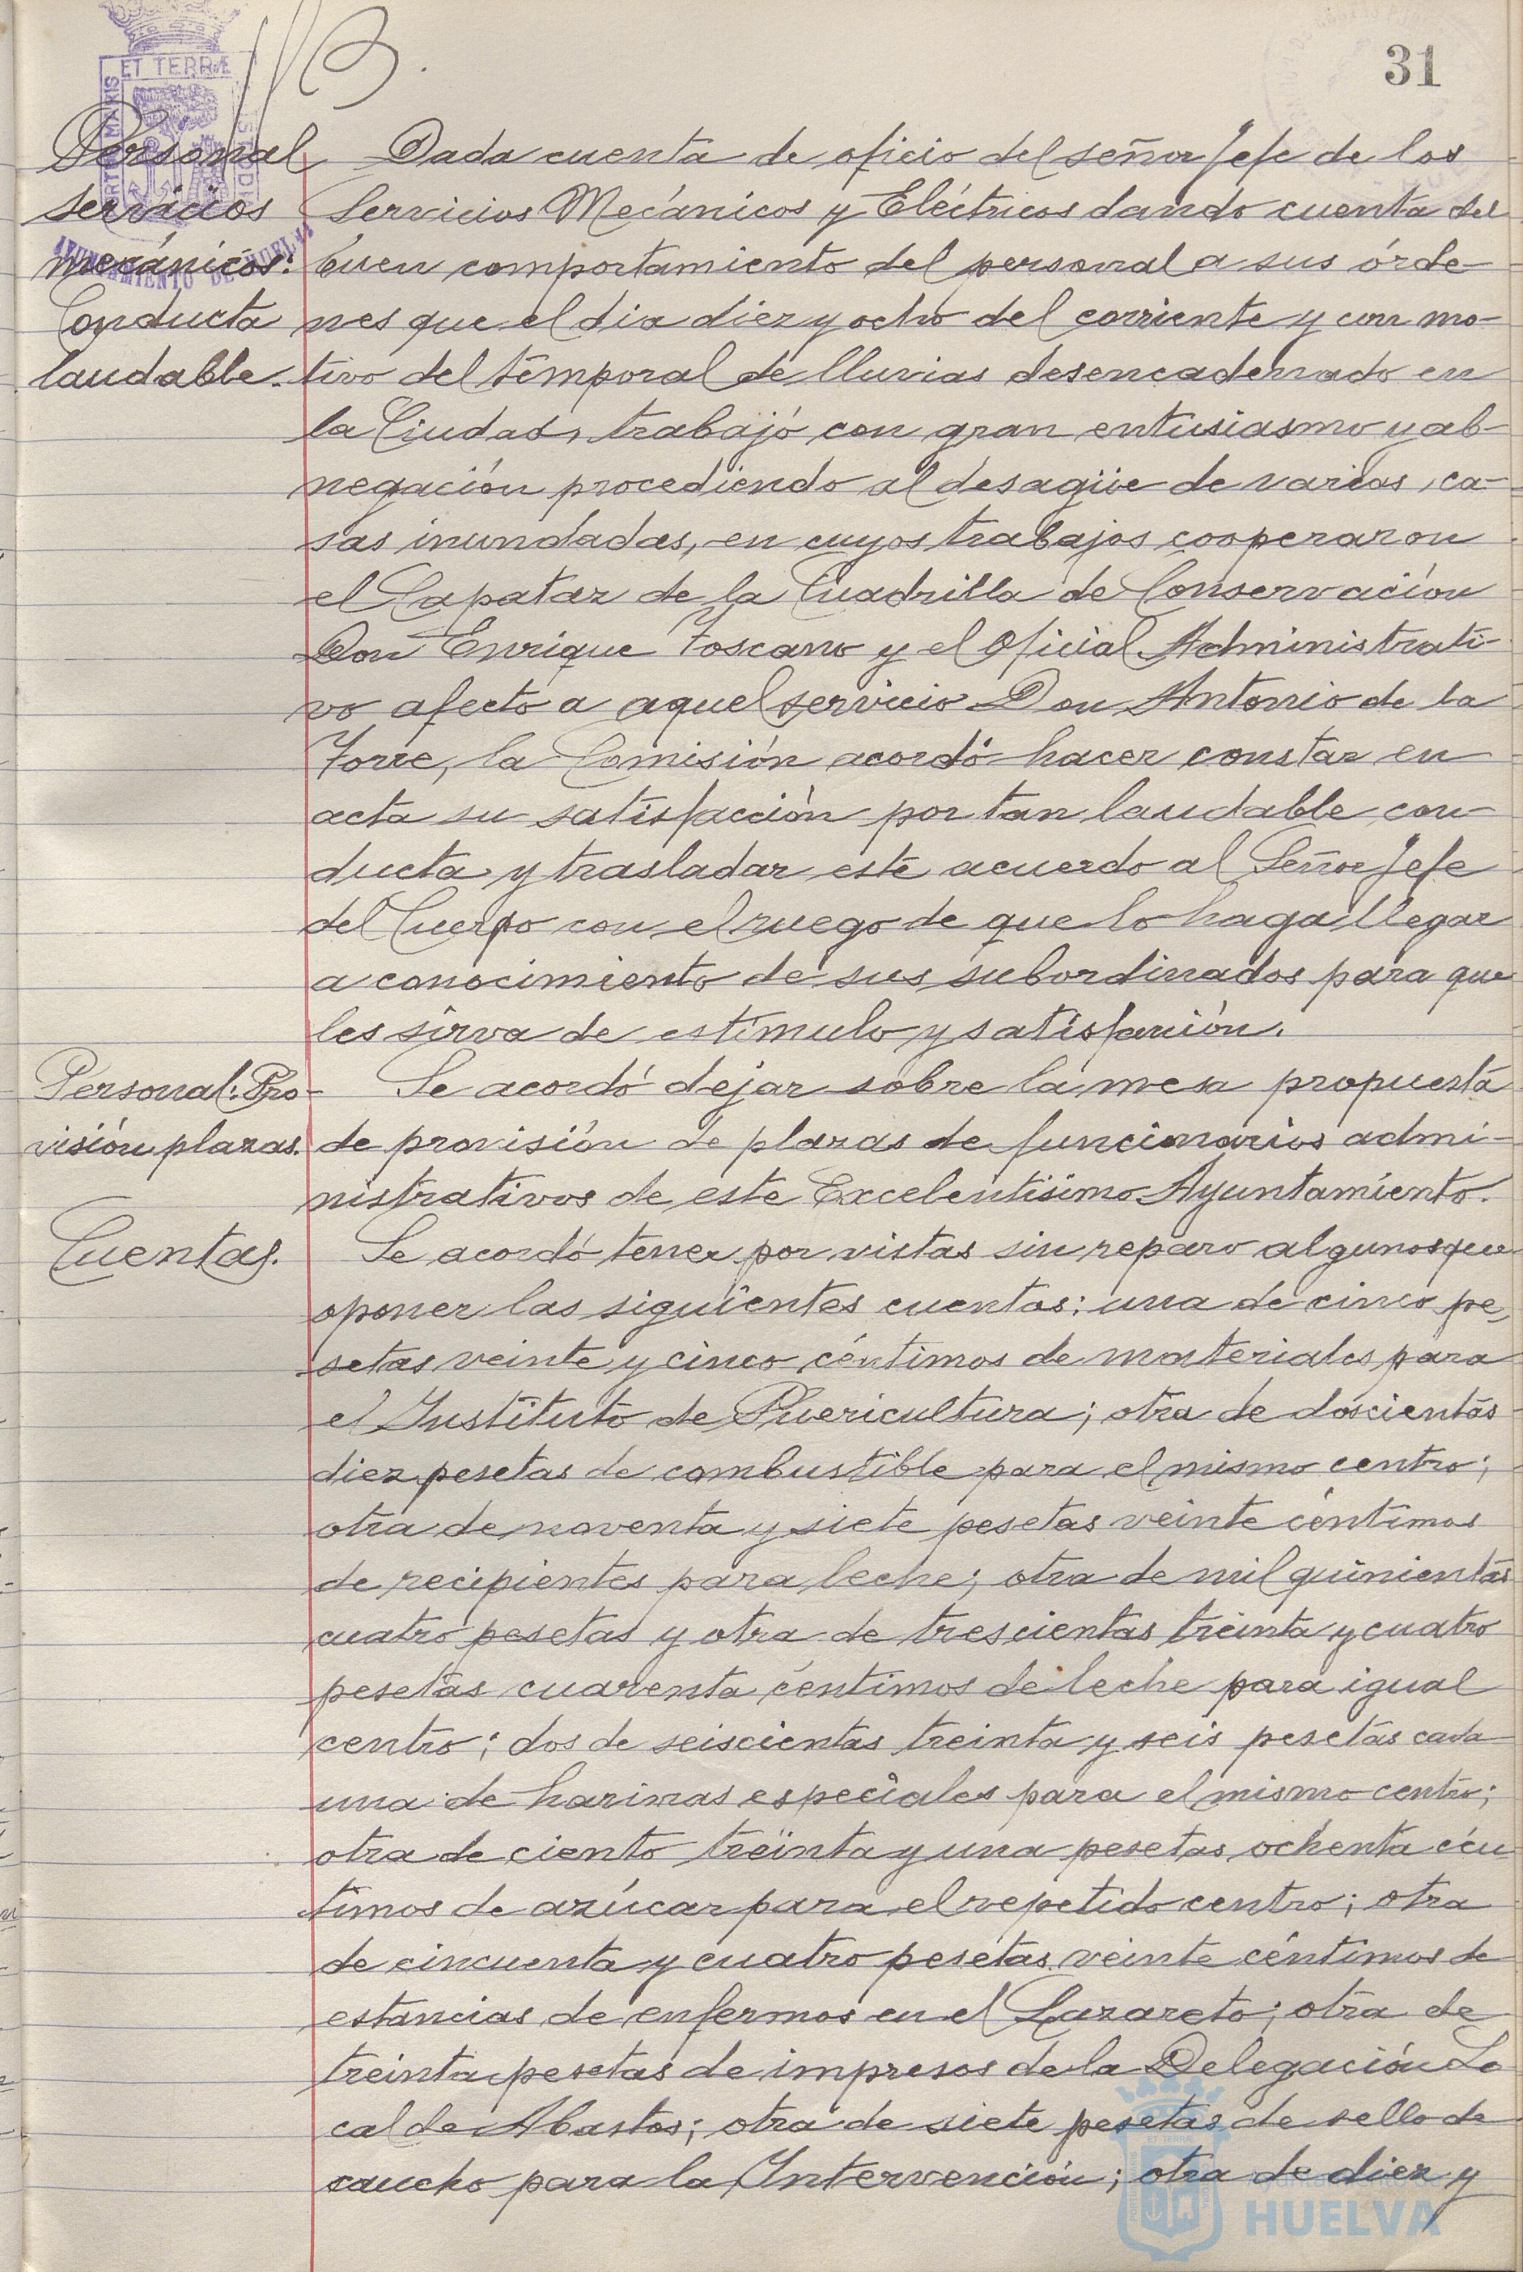 31
ET TERRÆ
AYUNTAMIENTO DE HUELVA
Personal
servicios
mecánicos:
Conducta
laudable.
Dada cuenta de oficio del señor Jefe de los
Servicios Mecánicos y Eléctricos dando cuenta del
buen comportamiento del personal a sus órde-
nes que el dia diez y ocho del corriente y con mo-
tivo del temporal de lluvias desencadenado en
la Ciudad, trabajó con gran entusiasmo y ab-
negación procediendo al desagüe de varias ca-
sas inundadas, en cuyos trabajos cooperaron
el Capataz de la Cuadrilla de Conservación
Don Enrique Toscano y el Oficial Administrati-
vo afecto a aquel servicio Don Antonio de la
Torre, la Comisión acordó hacer constar en
acta su satisfacción por tan laudable con-
ducta y trasladar este acuerdo al Señor Jefe
del Cuerpo con el ruego de que lo haga llegar
a conocimiento de sus subordinados para que
les sirva de estímulo y satisfación.
Personal: Pro-
visión plazas.
Se acordó dejar sobre la mesa propuesta
de provisión de plazas de funcionarios admi-
nistrativos de este Excelentísimo Ayuntamiento.
Cuentas.
Se acordó tener por vistas sin reparo algunos que
oponer las siguientes cuentas: una de cinco pe-
setas veinte y cinco céntimos de materiales para
el Instituto de Puericultura; otra de doscientas
diez pesetas de combustible para el mismo centro;
otra de noventa y siete pesetas veinte céntimos
de recipientes para leche; otra de mil quinientas
cuatro pesetas y otra de trescientas treinta y cuatro
pesetas cuarenta céntimos de leche para igual
centro; dos de seiscientas treinta y seis pesetas cada
una de harinas especiales para el mismo centro;
otra de ciento treinta y una pesetas ochenta cén-
timos de azúcar para el repetido centro; otra
de cincuenta y cuatro pesetas veinte céntimos de
estancias de enfermos en el Lazareto; otra de
treinta pesetas de impresos de la Delegación Lo
cal de Abastos; otra de siete pesetas de sello de
caucho para la Intervención; otra de diez y
Ayuntamiento de
HUELVA